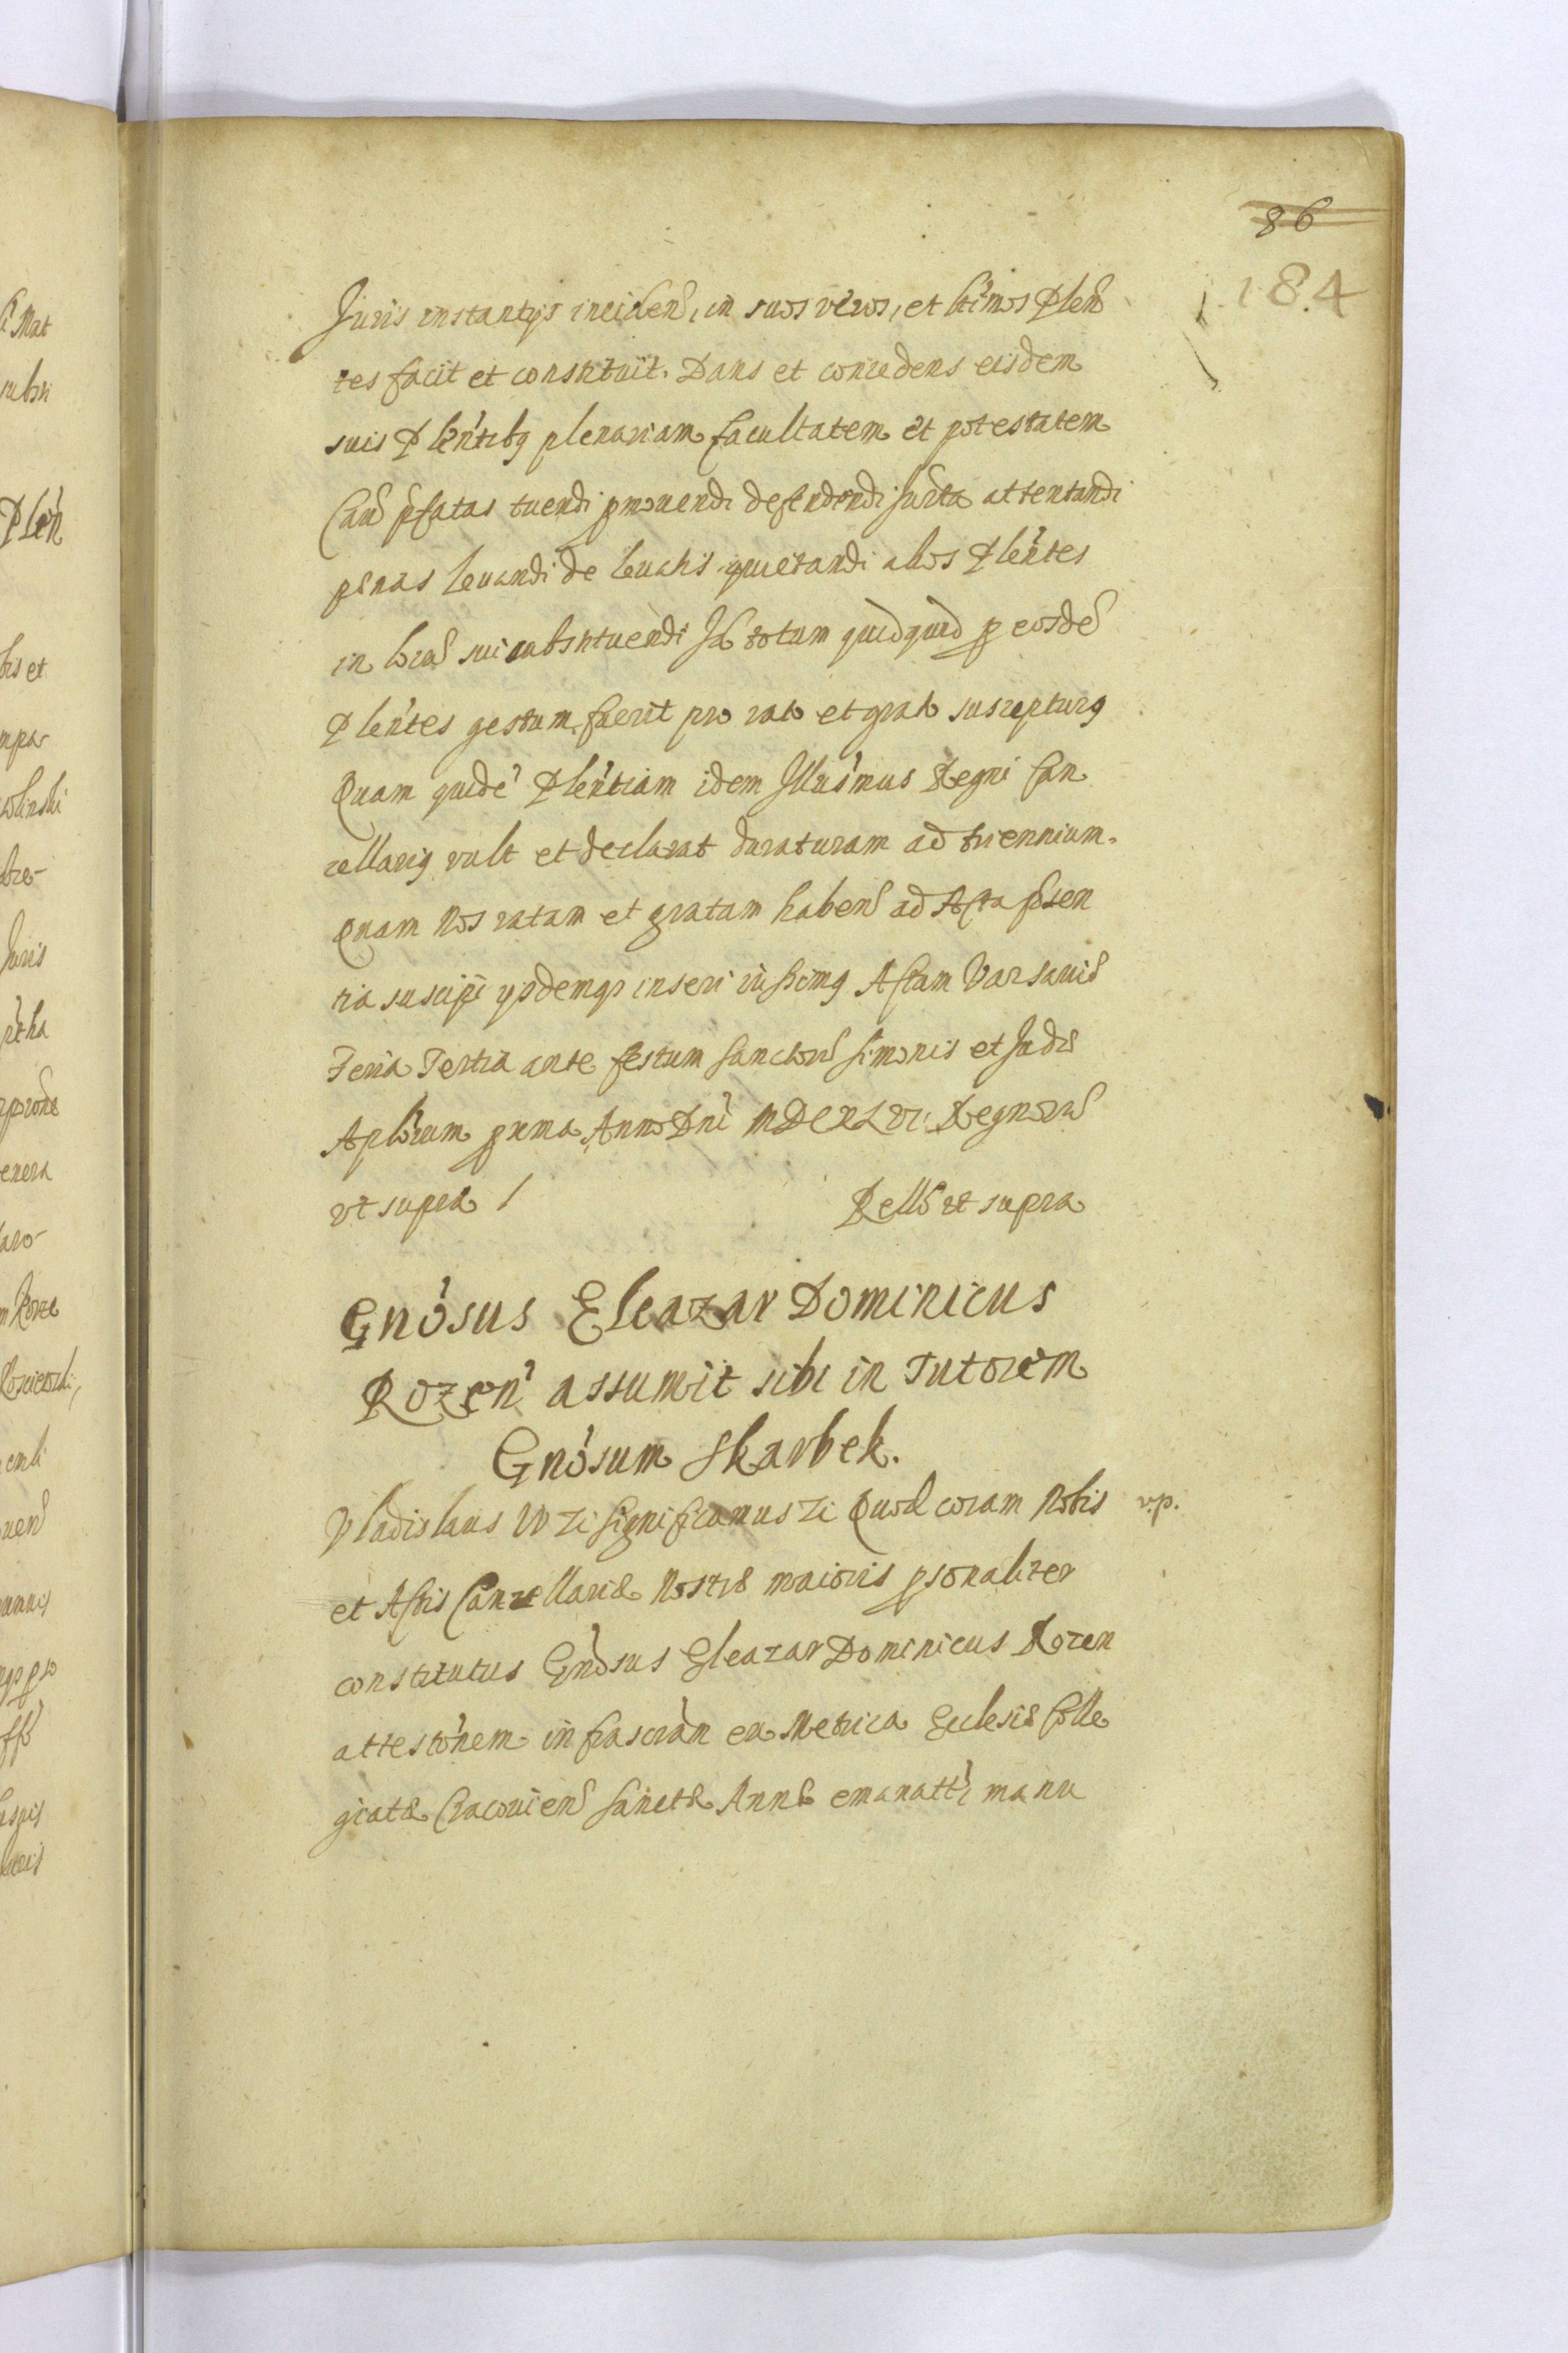 86
184
Juris instantijs inciden, in suos veros, et ltimos Plen
tes facit et constituit. Dans et concedens eisdem
suis Plentibg plenariam facultatem et potestatem
Caũ pfatas tuendi pmouendi defendendi Jurta attentandi
penas leuandi de leuatis quietandi alios Plentes
in locũ sui substituendi Id totum quidquid p eosdẽ
Plentes gestum fuerit pro rato et grato suscepturg
Quam quidẽ Plentiam idem Illusmus Regni Can
cellarig vult et declarat duraturam ad triennium.
Quam Nos ratam et gratam haben ad Acta psen
tia suscipi ijsdemqs inseri iussimg Actam Varsauiæ
Feria Tertia ante festum Sanctorũ Simonis et Judæ
Aplorum pxima Anno Dni MDCXLVI. Regnorũ
vt supra /
Rello vt supra
Gnosus Eleazar Dominicus
Rozen assumit sibi in Tutorem
Gnosum Skarbek.
Vladislaus IV Zi Significamus Zi Quod coram Nobis
v.p.
et Actis Cancellariæ Nostræ maioris psonaliter
constitutus Gnosus Eleazar Dominicus Rozen
attestonem infrascram ex Metrica Ecclesiæ Colle
giatæ Cracouien Sanctæ Annæ emanatt manu